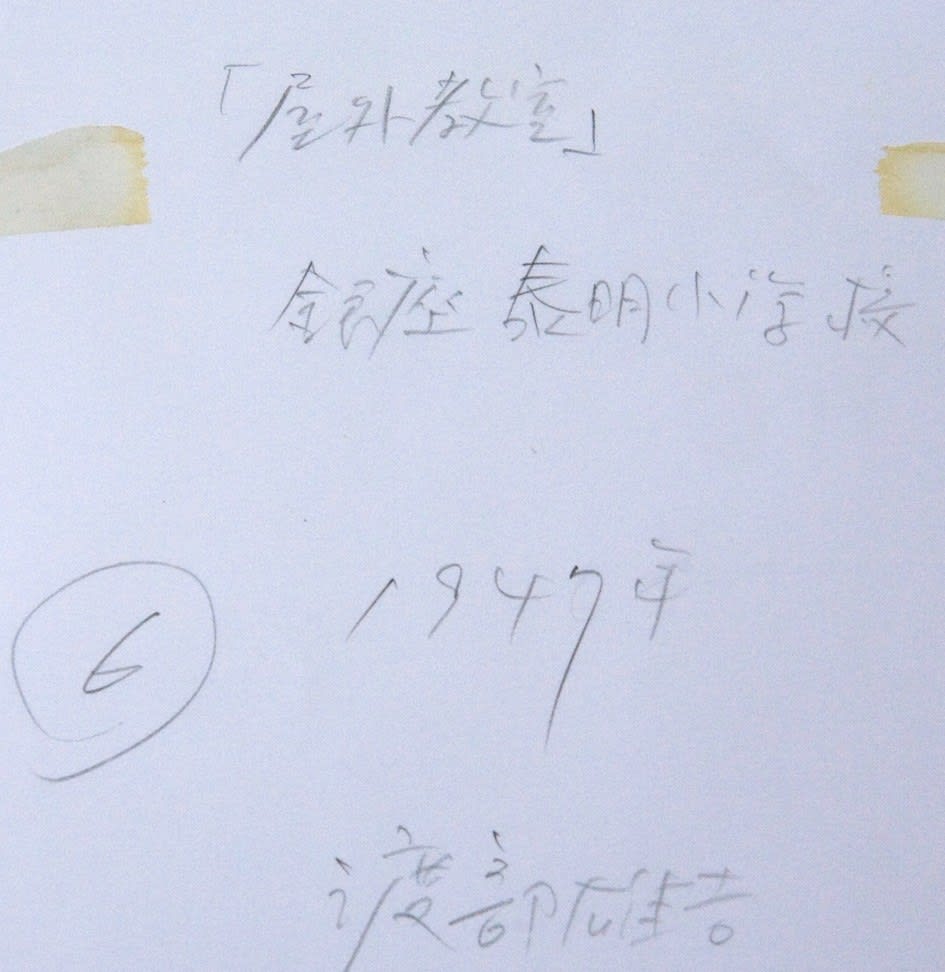 「屋外教室」
銀座 泰明小学校
1947年
⑥
渡部雄吉